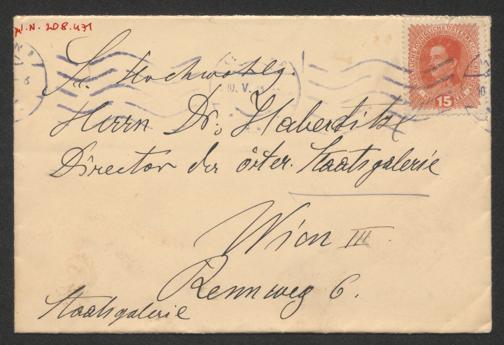 N.N. 208.471
Sr. Hochwohlg.
10. V.
Herrn Dr. Haberditzl
15
Director der öster. Staatsgalerie
Wien III
Rennweg 6.
Staatsgalerie